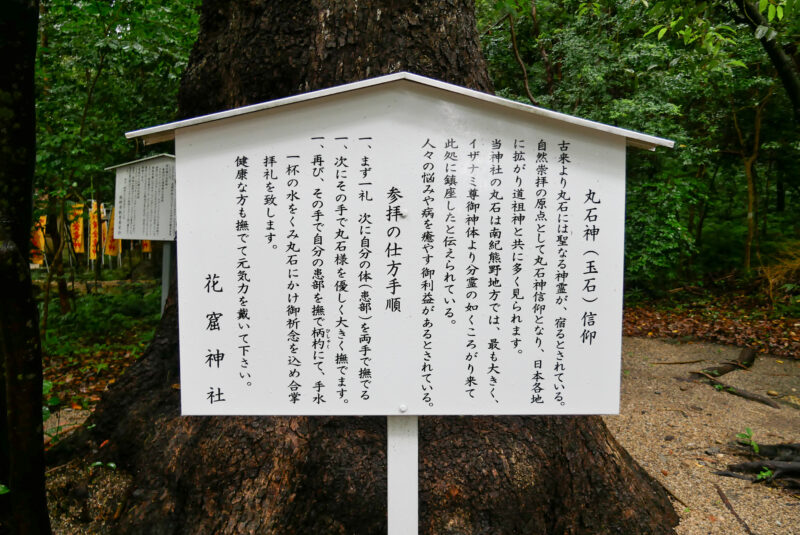 丸石神（玉石）信仰
古来より丸石には聖なる神霊が、宿るとされている。
自然崇拝の原点として丸石神信仰となり、日本各地
に拡がり道祖神と共に多く見られます。
当神社の丸石は南紀熊野地方では、最も大きく、
イザナミ尊御神体より分霊の如くころがり来て
此処に鎮座したと伝えられている。
人々の悩みや病を癒やす御利益があるとされている。
参拝の仕方手順
一、まず一礼 次に自分の体（患部）を両手で撫でる
一、次にその手で丸石様を優しく大きく撫でます。
一、再び、その手で自分の患部を撫で柄杓にて、手水
ひしゃく
一杯の水をくみ丸石にかけ御祈念を込め合掌
拝礼を致します。
健康な方も撫でて元気力を戴いて下さい。
花窟神社